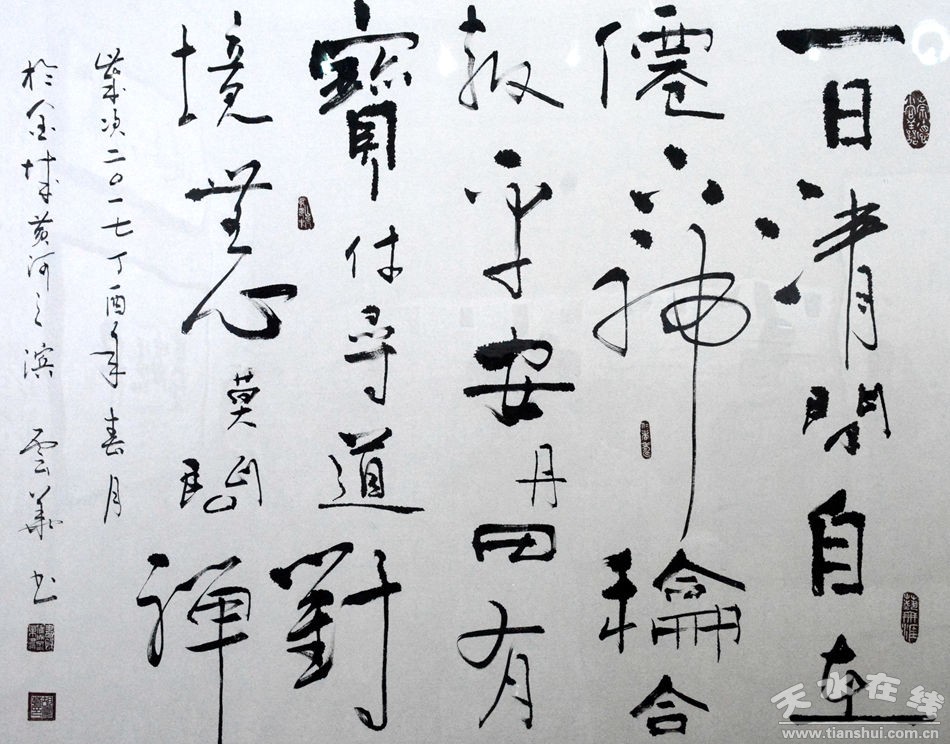 一日清閒自在
僊六神龢合
報平安丹田有
寶休尋道對
境無心莫問禪
歲次二〇一七丁酉年春月
於金城黃河之滨雲華书
天水在线
www.tianshui.com.cn